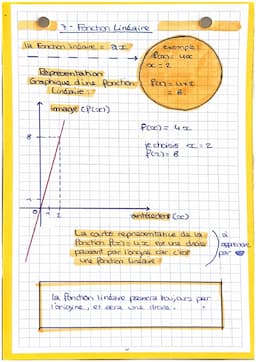 7 - Fonction Linéaire
la Fonction linéaire = ax
exemple:
f(x) = 4x
x = 2
f(x) = 4x2
= 8
Représentation
Graphique d'une fonction
Linéaire :
image (f(x))
f(x) = 4x
je choisis x = 2
f(2) = 8
8
1
0 1 2
antécédent (x)
La courbe représentative de la
fonction f(x) = 4x est une droite
passant par l'origine car c'est
une fonction linéaire
à
apprendre
par
la fonction linéaire passera toujours par
l'origine, et sera une droite.